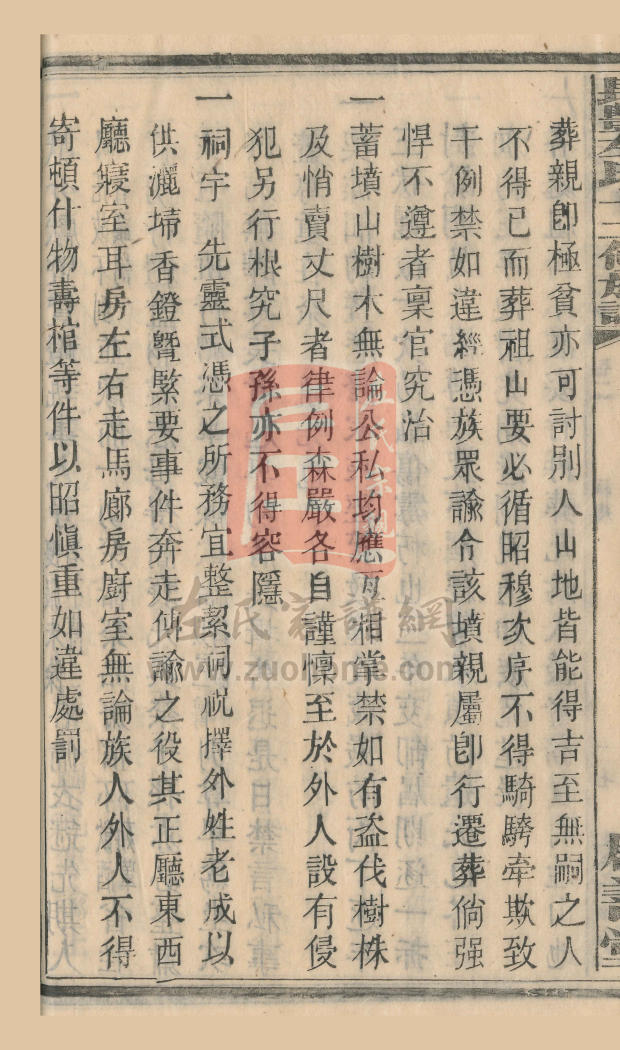 葬親卽極貧亦可討別人山地皆能得吉至無嗣之人
不得已而葬祖山要必循昭穆次序不得騎騎牽欺致
干例禁如違經憑族眾諭令該墳親屬卽行遷葬倘强
悍不遵者稟官究治
一蓄墳山樹木無論公私均應互相掌禁如有盗伐樹株
及悄賣丈尺者律例森嚴各自謹懍至於外人設有侵
犯另行根究子孫亦不得容隱
一祠宇　先靈式憑之所務宜整潔祠祝擇外姓老成以
供灑埽香鐙曁緊要事件奔走傳諭之役其正廳東西
廳寢室耳房左右走馬廊房廚室無論族人外人不得
寄頓什物壽棺等件以昭愼重如違處罰
左氏家譜網
www.zuohome.com